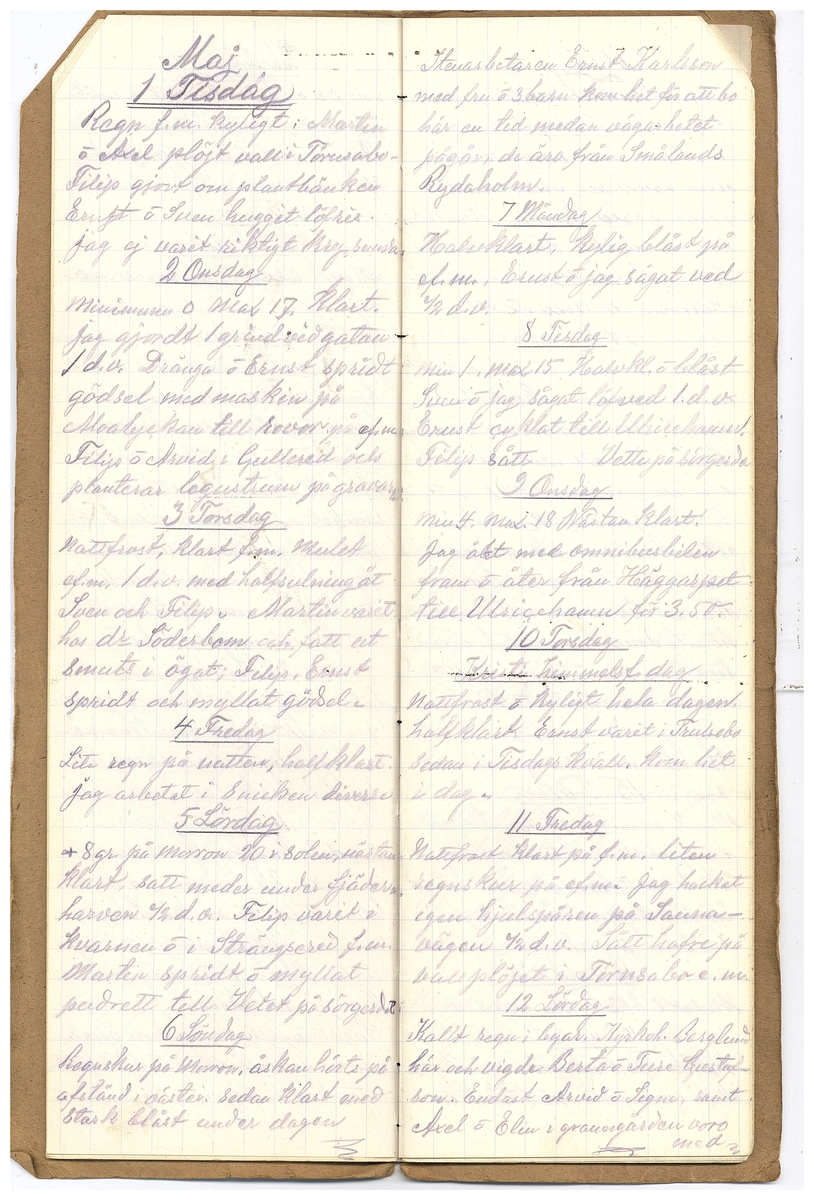 Maj
1 Tisdag
Regn f.m. kyligt; Martin
ö Axel plöjt vall i Törnsabo-
Filip gjort om plantbänken
Ernst ö Sven hugget löfris.
jag ej varit riktigt kry, snuva
2 Onsdag
Minimum 0 Max 17. Klart.
jag gjordt 1 grind vid gatan
1 d.v. Dränga ö Ernst spridt
gödsel med maskin på
till rovor på ef.m.
Filip ö Arvid i Gullered och
planterar legustrum på gravar
3 Torsdag
Nattfrost, klart f.m. Mulet
ef.m. 1 d.v. med halfsulning åt
Sven och Filip. Martin varit
hos dr Söderbom och fått ett
smuts i ögat; Filip, Ernst
spridt och myllat gödsel.
4 Fredag
Lite regn på natten, halfklart.
jag arbetat i Snicken diverse
5 Lördag
+ 8 gr. på morron 20 i solen, nästan
klart. satt meder under fjäder
harven 1/2 d.v. Filip varit i
kvarnen ö i Strängsered f.m.
Martin spridt ö myllat
pudrett till Vetet på sörgerde
6 Söndag
Regnskur på morron, åskan hörts på
afstånd i väster. sedan klart med
stark blåst under dagen
Stenarbetaren Ernst Karlsson
med fru ö 3 barn kom hit för att bo
här en tid medan vägarbetet
pågår, de äro från Smålands
Rydaholm.
7 Måndag
Halvklart, kylig blåst på
ef.m., Ernst ö jag sågat ved
1/2 d.v.
8 Tisdag
Min 1, max 15 Halvkl. ö blåst
Sven ö jag sågat löfved 1. d.v.
Ernst cyklat till Ulricehamn.
Filip sått Vette på sörgerde
9 Onsdag
Min 4. Max. 18 Nästan klart.
Jag åkt med omnibusbilen
fram ö åter från Häggarpet
till Ulricehamn för 3.50.
10 Torsdag
Kristi himmelsf. dag
Nattfrost ö kyligt hela dagen.
halfklart. Ernst varit i Trusebo
sedan i Tisdags kväll. kom hit
i dag.
11 Fredag
Nattfrost klart på f.m. liten
regnskur på ef.m. Jag hacket
igen hjulspåren på
vägen 1/2 d.v. Sått hafre på
vallplöjet i Törnsabo e.m.
12 Lördag
Kallt regn i byar. Kyrkoh. Berglund
här och vigde Berta ö Ture Gustaf-
son. Endast Arvid ö Signe, samt
Axel ö Elin i graungården voro
med